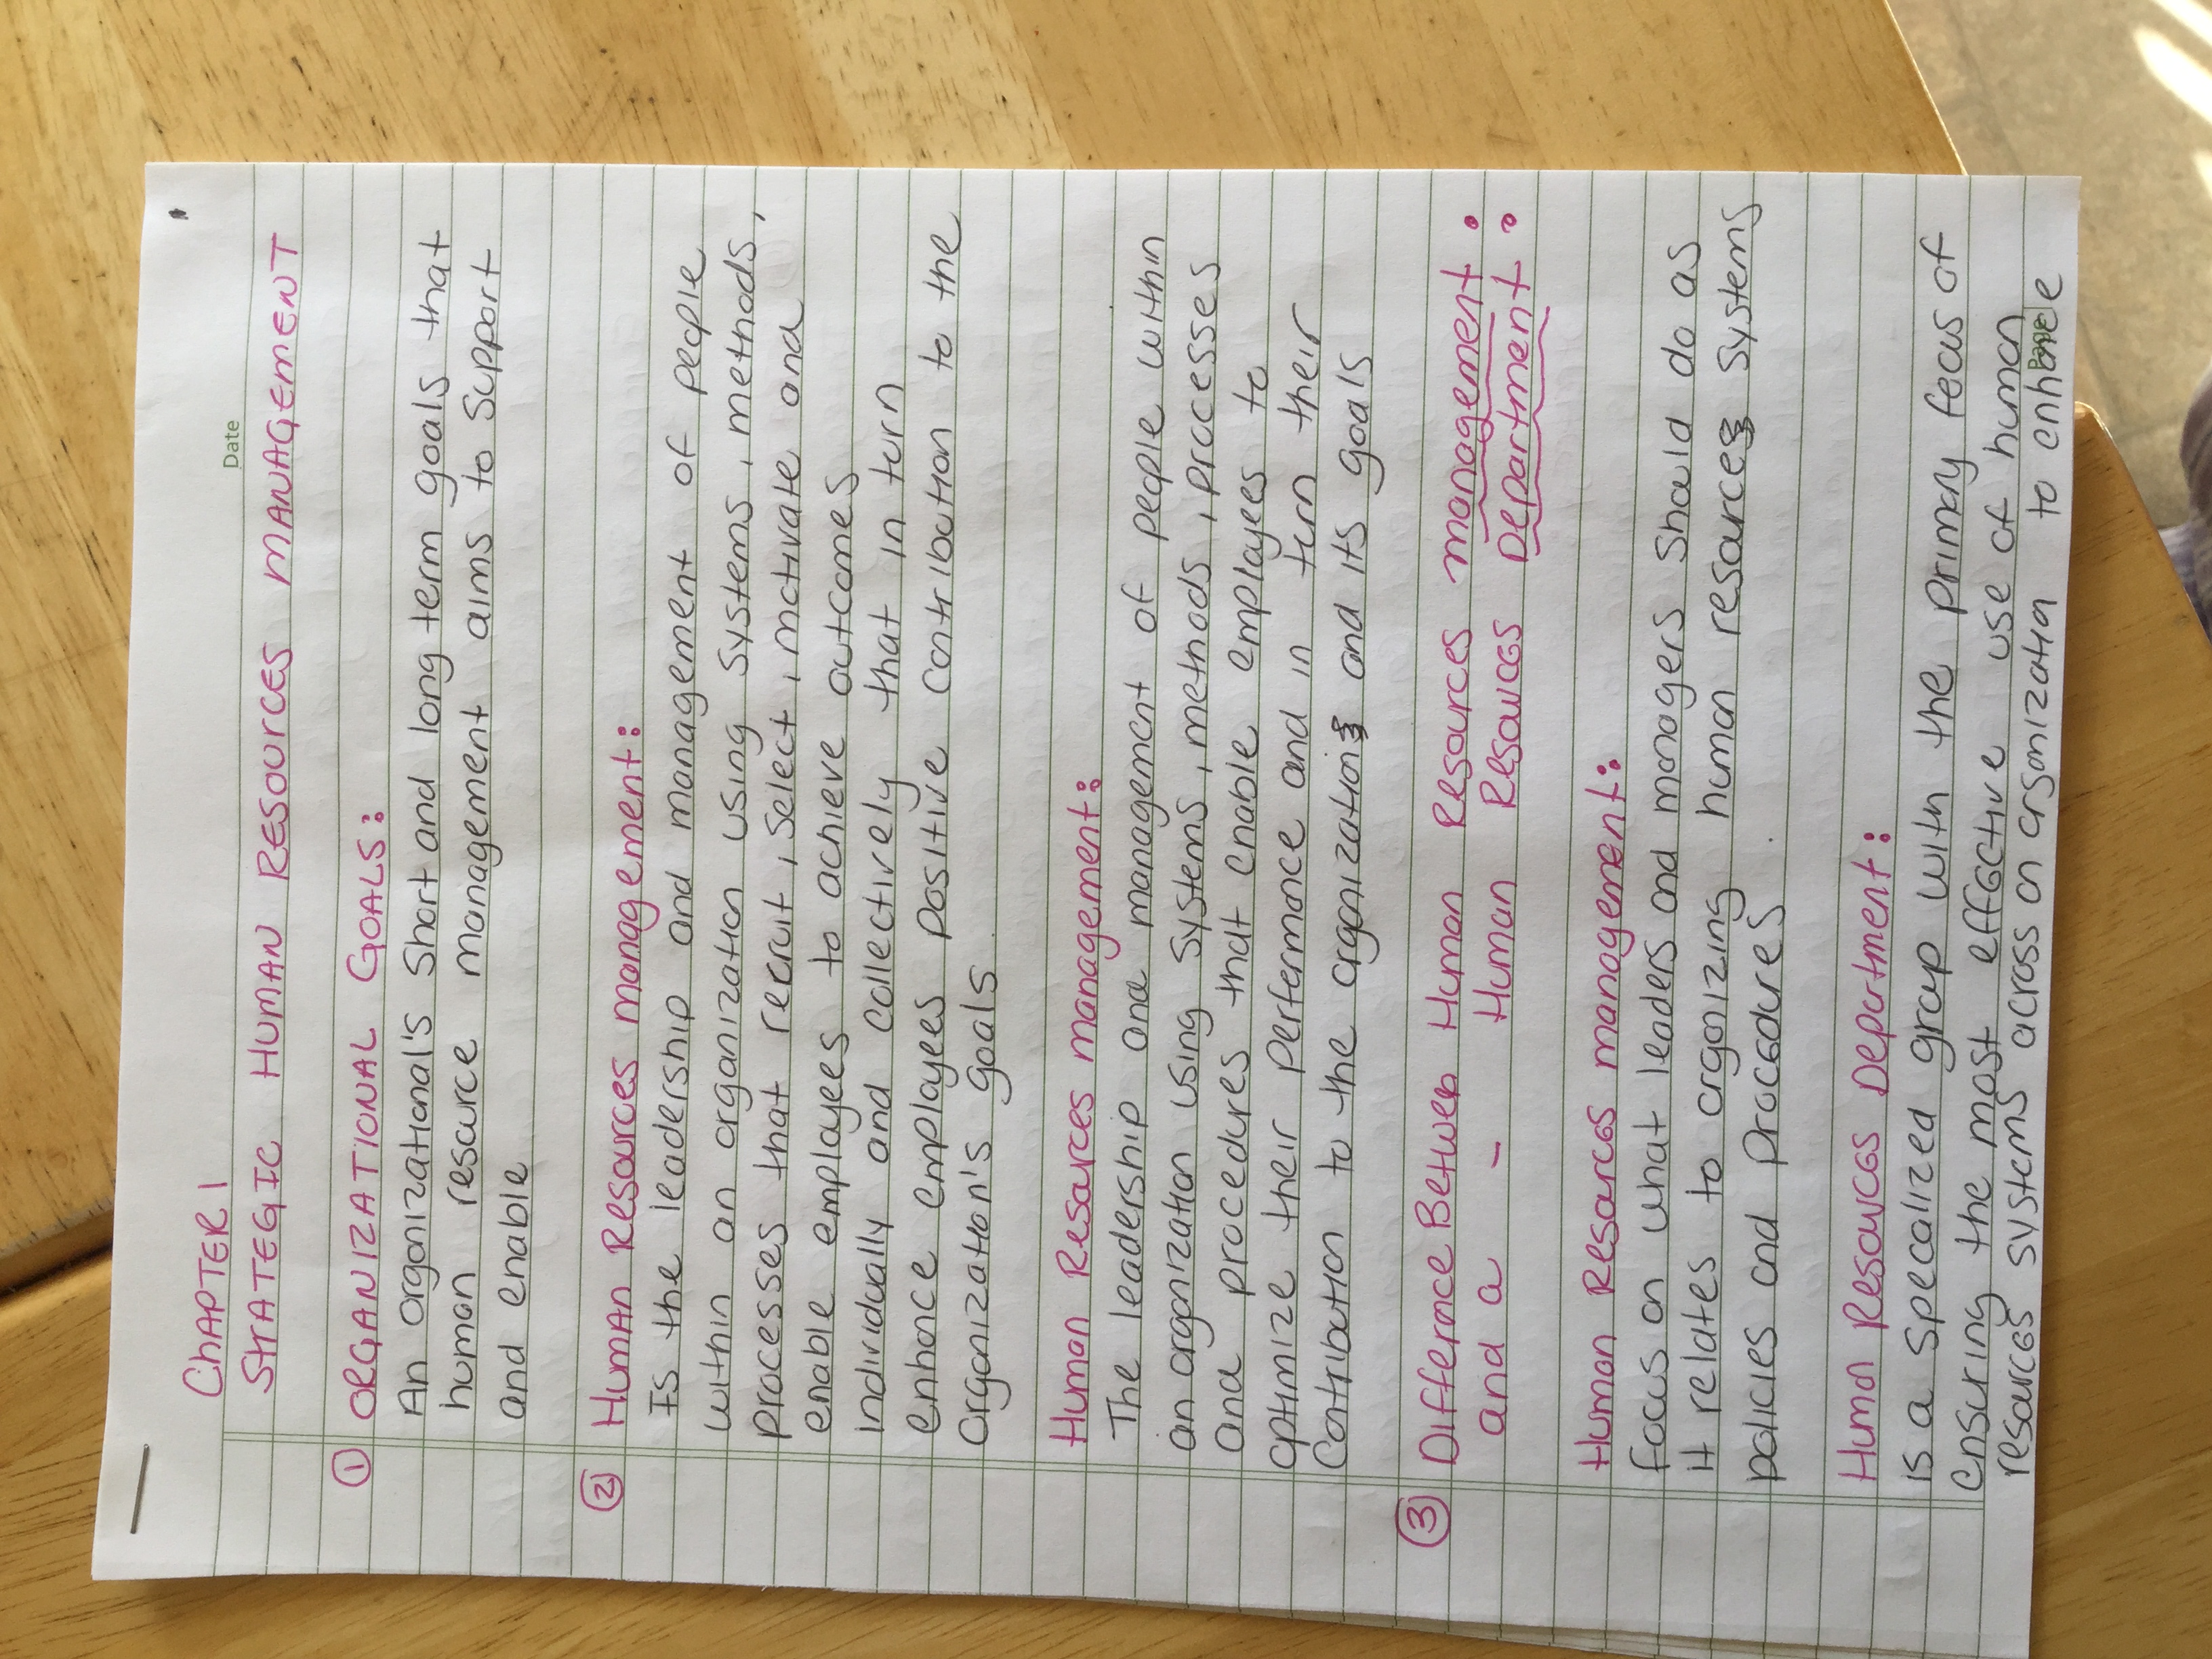 Date
CHAPTER 1
STRATEGIC HUMAN RESOURCES MANAGEMENT
① ORGANIZATIONAL GOALS:
An organizational's short and long term goals that
human resource management aims to support
and enable
② Human Resources management:
Is the leadership and management of people
within an organization using systems, methods,
processes that recruit, select, motivate and
enable employees to achieve outcomes
individually and collectively that in turn
enhance employees positive contribution to the
organization's goals
Human Resources management:
The leadership and management of people within
an organization using systems, methods, processes
and procedures that enable employees to
optimize their performance and in turn their
contribution to the organizations and its goals
③ Difference Between Human Resources management:
and a - Human Resources Department:
Human Resources management:
focus on what leaders and managers should do as
it relates to organizing human resources systems
policies and procedures
Human Resources Department:
is a specalized group with the primary focus of
ensuring the most effective use of human
resources systems across an organization to enhance
Page